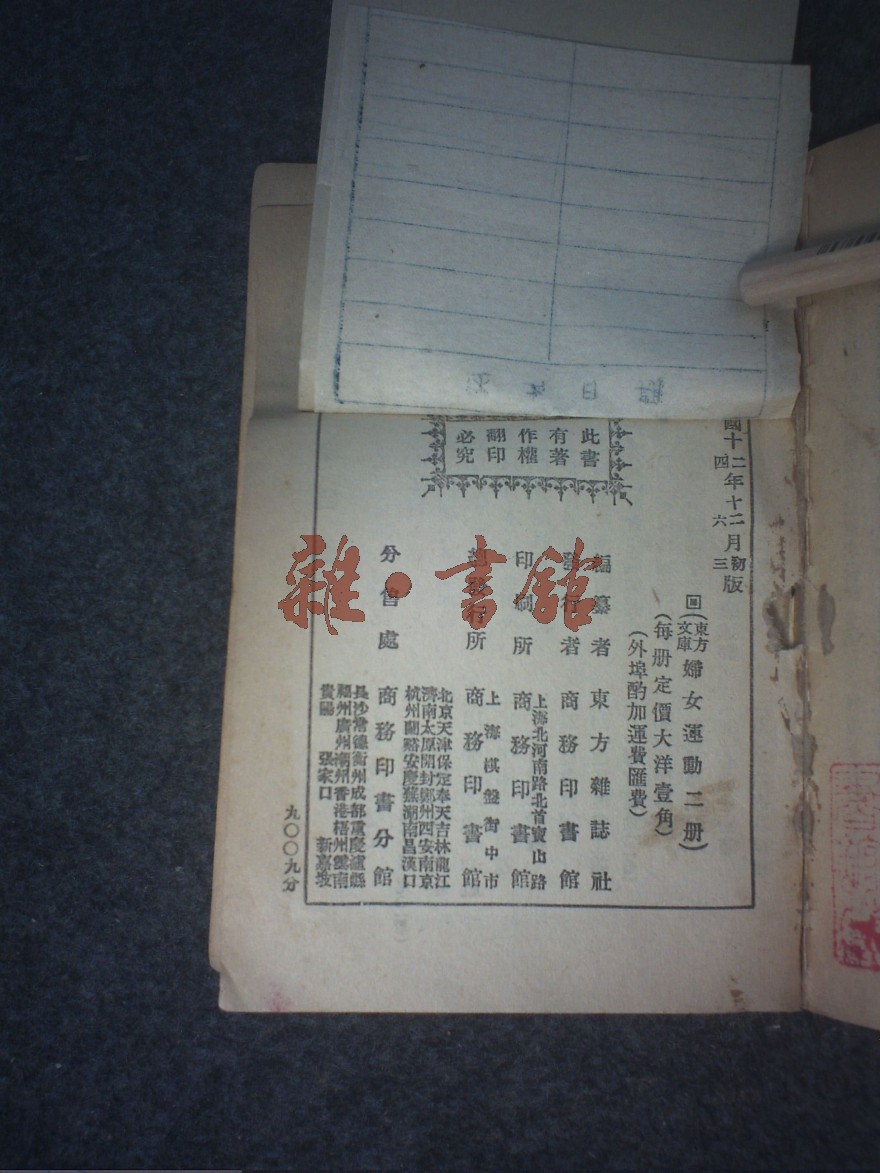 國十二年十二月初版
四 六 三
回(東方文庫)婦女運動二册)
(每册定價大洋壹角)
(外埠酌加運費匯費)
此書
有著
作權
翻印
必究
編纂者 東方雜誌社
發行者 商務印書館
上海北河南路北首寶山路
印刷所 商務印書館
上海棋盤街中市
總發行所 商務印書館
北京天津保定奉天吉林龍江
濟南太原開封鄭州西安南京
杭州蘭谿安慶蕪湖南昌漢口
分售處 商務印書分館
長沙常德衡州成都重慶瀘縣
福州廣州潮州香港梧州雲南
貴陽 張家口 新嘉坡
九〇〇九分
雜·書館